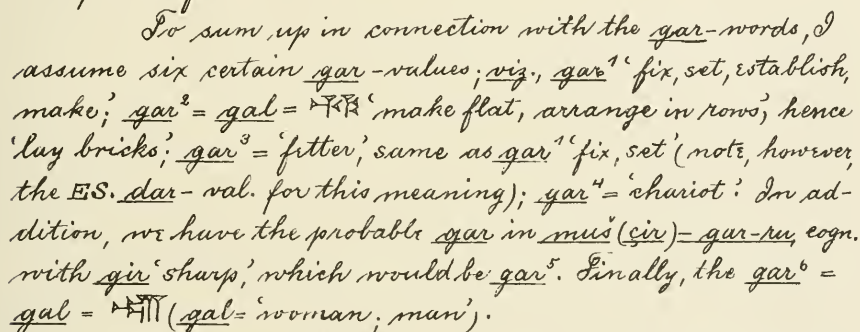 To sum up in connection with the gar-words, I
assume six certain gar-values; viz., gar¹ ‘fix, set, establish,
make;’ gar² = gal = ‘make flat, arrange in rows,’ hence
‘lay bricks;’ gar³ = ‘fetter,’ same as gar¹ ‘fix, set’ (note, however,
the ES. dar-val. for this meaning); gar⁴ = ‘chariot.’ In ad-
dition, we have the probable gar in muš (çir)-gar-ru, cogn.
with gir ‘sharp,’ which would be gar⁵. Finally, the gar⁶ =
gal = (gal = ‘woman; man’).